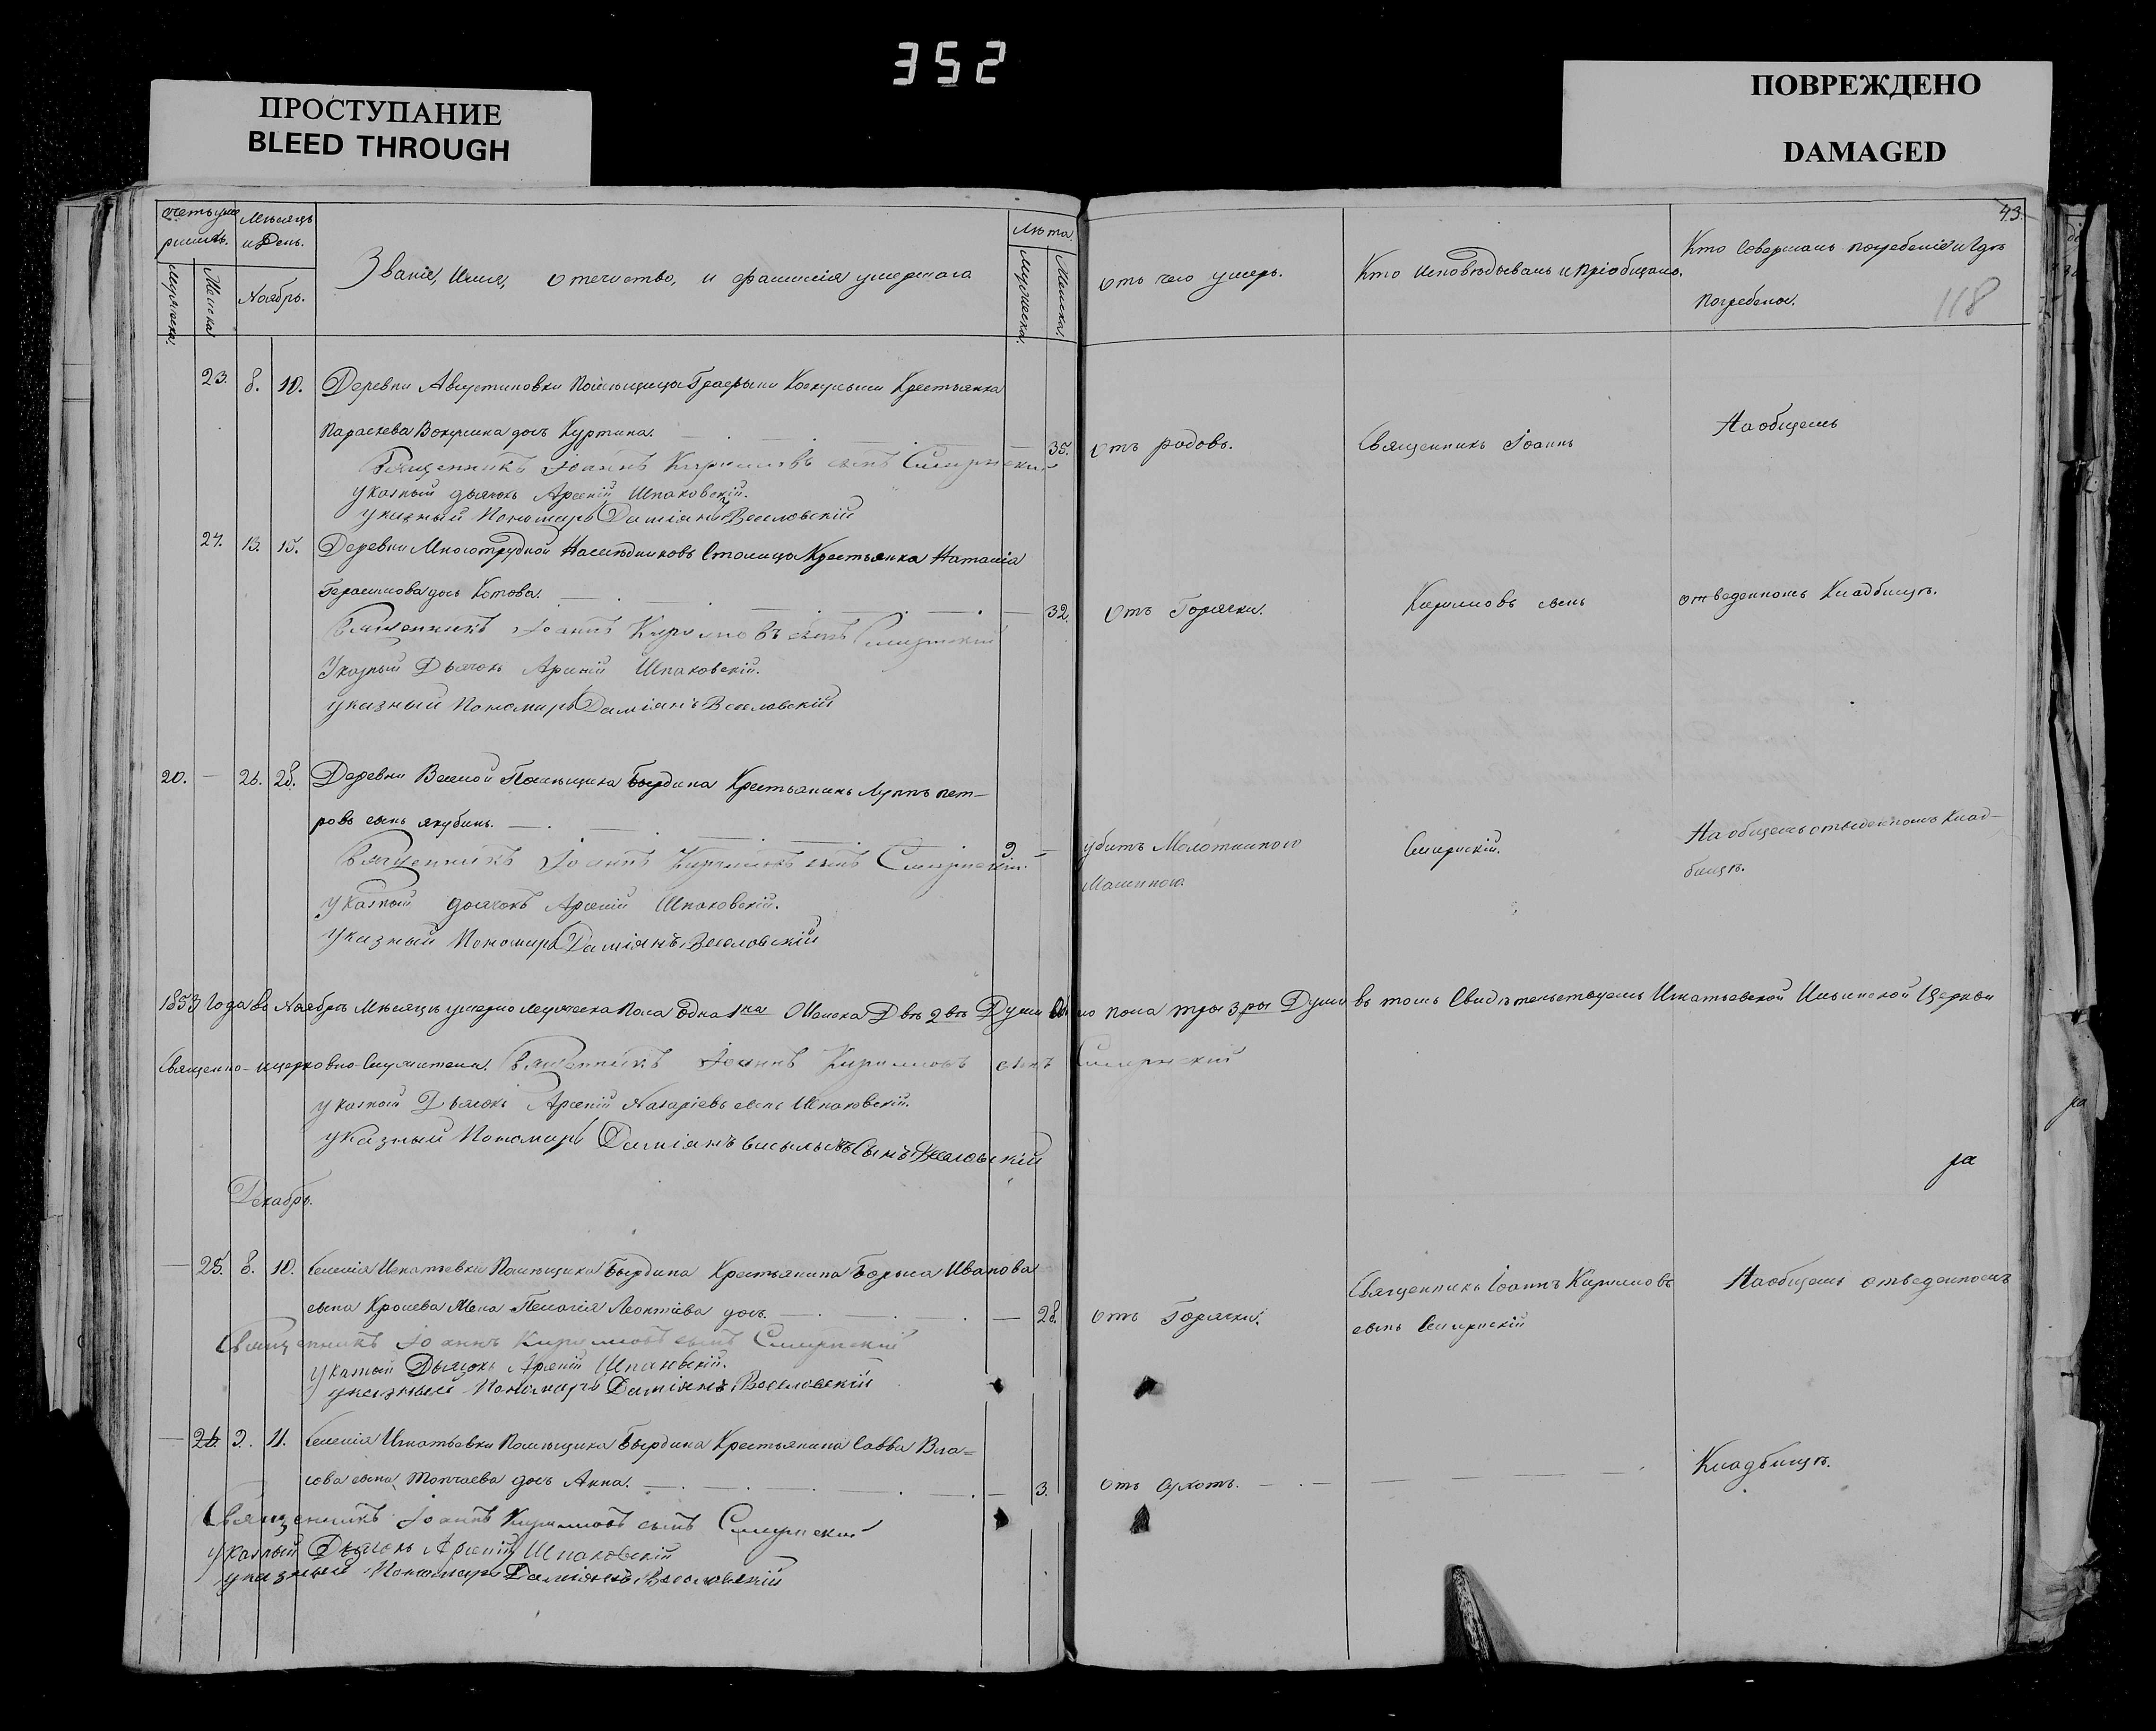 352
ПРОСТУПАНИЕ
BLEED THROUGH
ПОВРЕЖДЕНО
DAMAGED
43.
118
Счетъ уме
ршихъ.
Мужеска.
Женска
Мѣсяцъ
и День.
Ноябрь.
Званіе, Имя, отечество, и фамилія умершаго
Лѣта.
Мужеска.
Женска.
отъ чего умеръ.
Кто исповѣдывалъ и пріобщалъ.
Кто совершалъ погребеніе и гдѣ
погребены.
23. 8. 10. Деревни Августиновки Помѣщицы Графыни Крестьянка
Параскева дочь Куртина. 35. отъ родовъ. Священникъ Іоаннъ На общемъ
Священникъ Іоаннъ Кириловъ сынъ Смирнскій
указный дьячокъ Арсеній Шпаковскій.
указный Пономарь Даміянъ Веселовскій
24. 13. 15. Деревни Многотрудной Наслѣдниковъ Столица Крестьянка Наталія
Герасимова дочь Котова. 32. отъ Горячки. Кириловъ сынъ отведенномъ Кладбищѣ.
Священникъ Іоаннъ Кириловъ сынъ Смирнскій
Указный Дьячокъ Арсеній Шпаковскій.
указный Пономарь Даміянъ Веселовскій
20. — 26. 28. Деревни Веселой Помѣщика Бырдина Крестьянинъ Луппъ пет-
ровъ сынъ якубинъ. 9 — убитъ Молотилного Смирнскій. На общемъ отведенномъ Клад-
Машиною. бищѣ.
Священникъ Іоаннъ Кириловъ сынъ Смирнскій.
указный дьячокъ Арсеній Шпаковскій.
указный Пономарь Даміянъ Веселовскій
1853 Года въ Ноябрѣ Мѣсяцѣ умерло мужеска пола одна 1на Женска Двѣ 2вѣ Души пола три 3ри Души въ томъ Свидѣтельствуемъ Игнатьевской Ильинской Церкви
Священно-ицерковно-Служители. Священникъ Іоаннъ Кириловъ сынъ Смирнскій
указный Дьячокъ Арсеній Назаріевъ сынъ Шпаковскій.
указный Пономарь Даміянъ Сынъ Веселовскій
ра
Декабрь.
— 25. 8. 10. Селенія Игнатьевки Помѣщика Бырдина Крестьянина Бориса Иванова
сына Кролева Жена Пелагія Леонтіева дочь. — 28. отъ Горячки. Священникъ Іоаннъ Кириловъ На общемъ отведенномъ
сынъ Смирнскій
Священникъ Іоаннъ Кириловъ сынъ Смирнскій
указный Дьячокъ Арсеній Шпаковскій.
указный Пономарь Даміянъ Веселовскій
— 26. 9. 11. Селенія Игнатьевки Помѣщика Бырдина Крестьянина Савва Вла=
сова сына, Толчаева дочь Анна. — 3. Кладбищѣ.
Священникъ Іоаннъ Кириловъ сынъ Смирнскій
указный Дьячокъ Арсеній Шпаковскій
указный Пономарь Даміянъ Веселовскій
ра